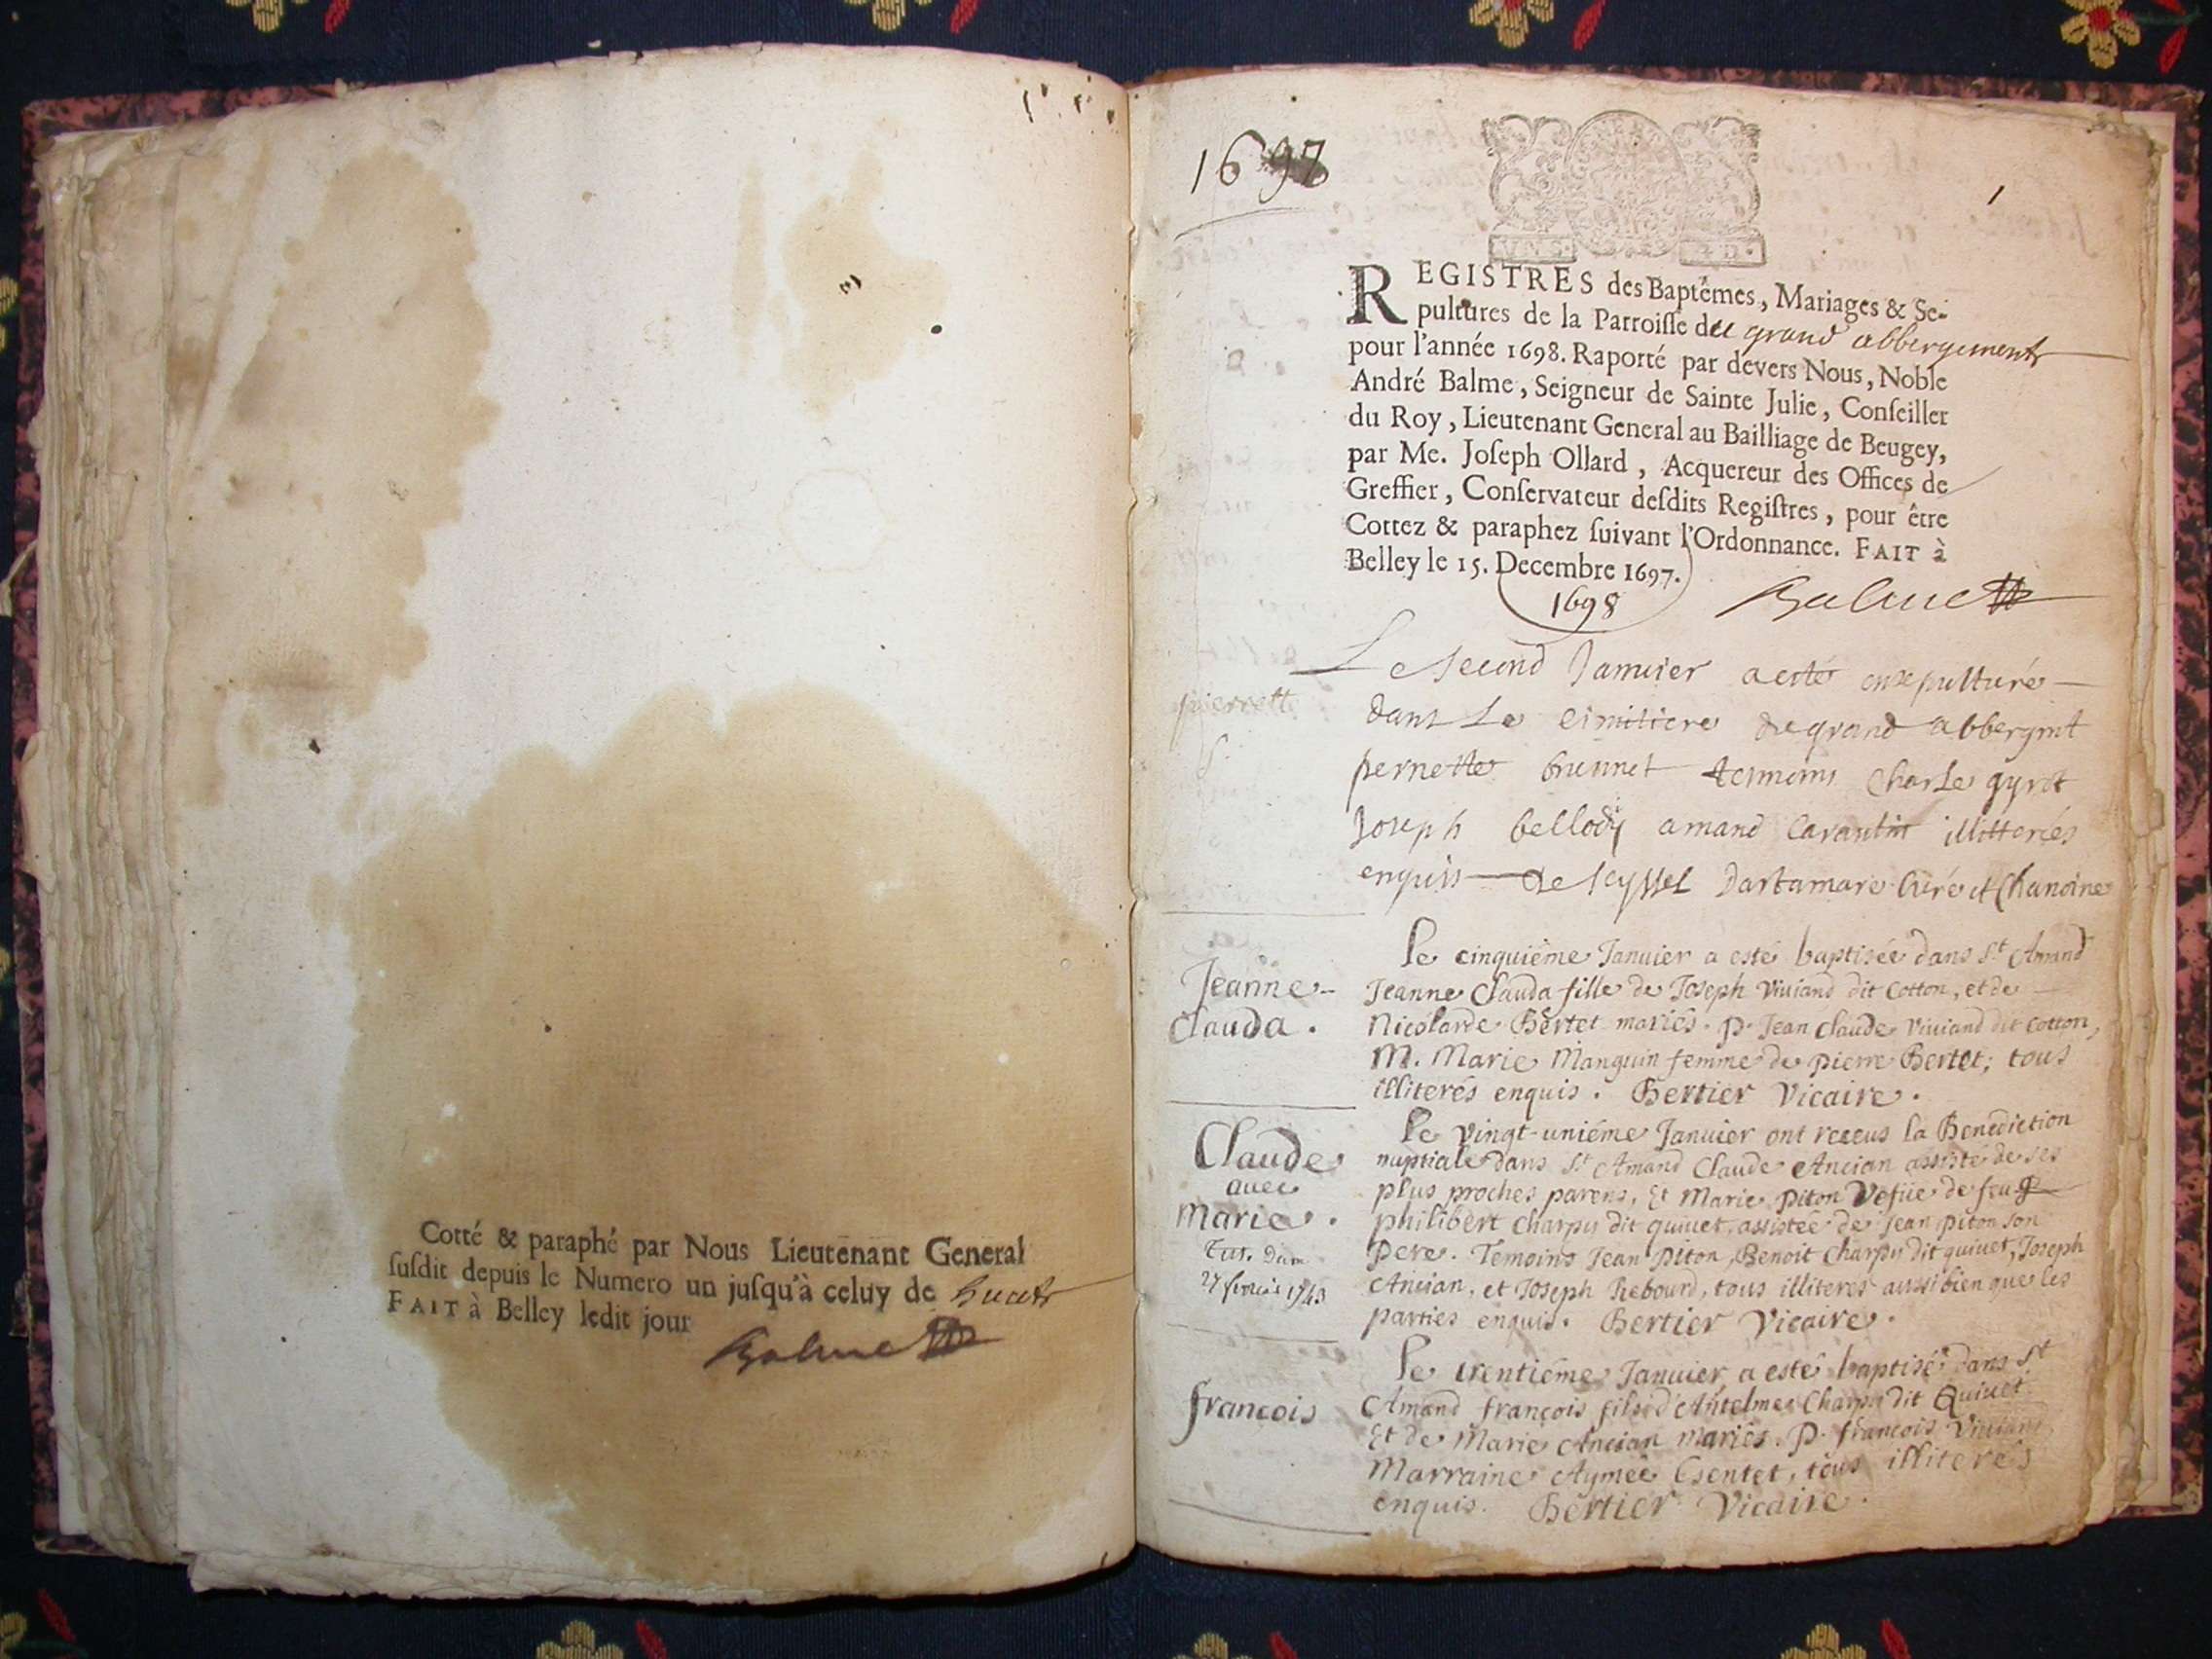 Cotté & paraphé par Nous Lieutenant General
susdit depuis le Numero un jusqu'à celuy de huict
FAIT à Belley ledit jour
Balme
1697
1
REGISTRES des Baptêmes, Mariages & Se-
pultures de la Parroisse du grand abbergement
pour l'année 1698. Raporté par devers Nous, Noble
André Balme, Seigneur de Sainte Julie, Conseiller
du Roy, Lieutenant General au Bailliage de Beugey,
par Me. Joseph Ollard, Acquereur des Offices de
Greffier, Conservateur desdits Registres, pour être
Cottez & paraphez suivant l'Ordonnance. FAIT à
Belley le 15. Decembre 1697.
1698
Balme
Le second Janvier a esté ensepulturé
pierrette
dans Le cimitiere de grand abbergmt
S.
pernette brunnet tesmoins Charle gyrot
Joseph bellody amand Carantin illitterés
enquis de seyssel Dartamare Curé et Chanoine
Le cinquiéme Janvier a esté baptisée dans St Amand
Jeanne-
Clauda.
Jeanne Clauda fille de Joseph Viviand dit Cotton, et de
Nicolarde Bertet mariés. P. Jean Claude Viviand dit Cotton,
M. Marie Manguin femme de pierre Bertet; tous
illiterés enquis. Bertier Vicaire.
Le vingt-uniéme Janvier ont receus la Benediction
Claude
avec
Marie.
nuptiale dans St Amand Claude Ancian assisté de ses
plus proches parens, Et Marie Piton Vefüe de feu
philibert Charpy dit quivet, assistée de Jean Piton son
27 1743
Pere. Temoins Jean Piton, Benoit Charpy dit quivet, Joseph
Ancian, et Joseph Rebourd, tous illiterés aussi bien que les
parties enquis. Bertier Vicaire.
Le trentiéme Janvier a esté baptisé dans St
françois
Amand françois fils d'Antelme Charpy dit Quivet
Et de Marie Ancian mariés. P. francois Viviand
Marraine Aymée, tous illiterés
enquis. Bertier Vicaire.